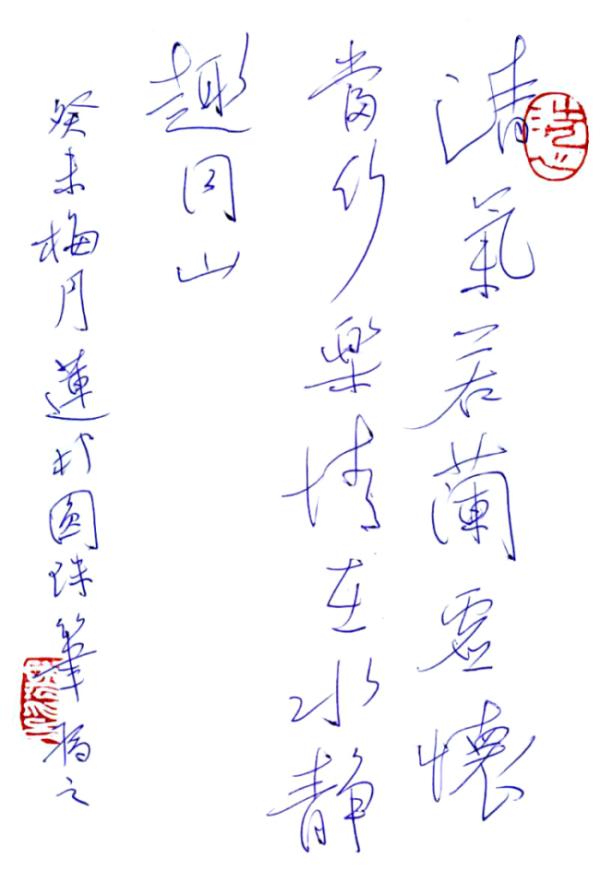 清氣若蘭虛懷
當竹樂情在水靜
趣同山
癸未梅月蓮村圓珠筆揚之